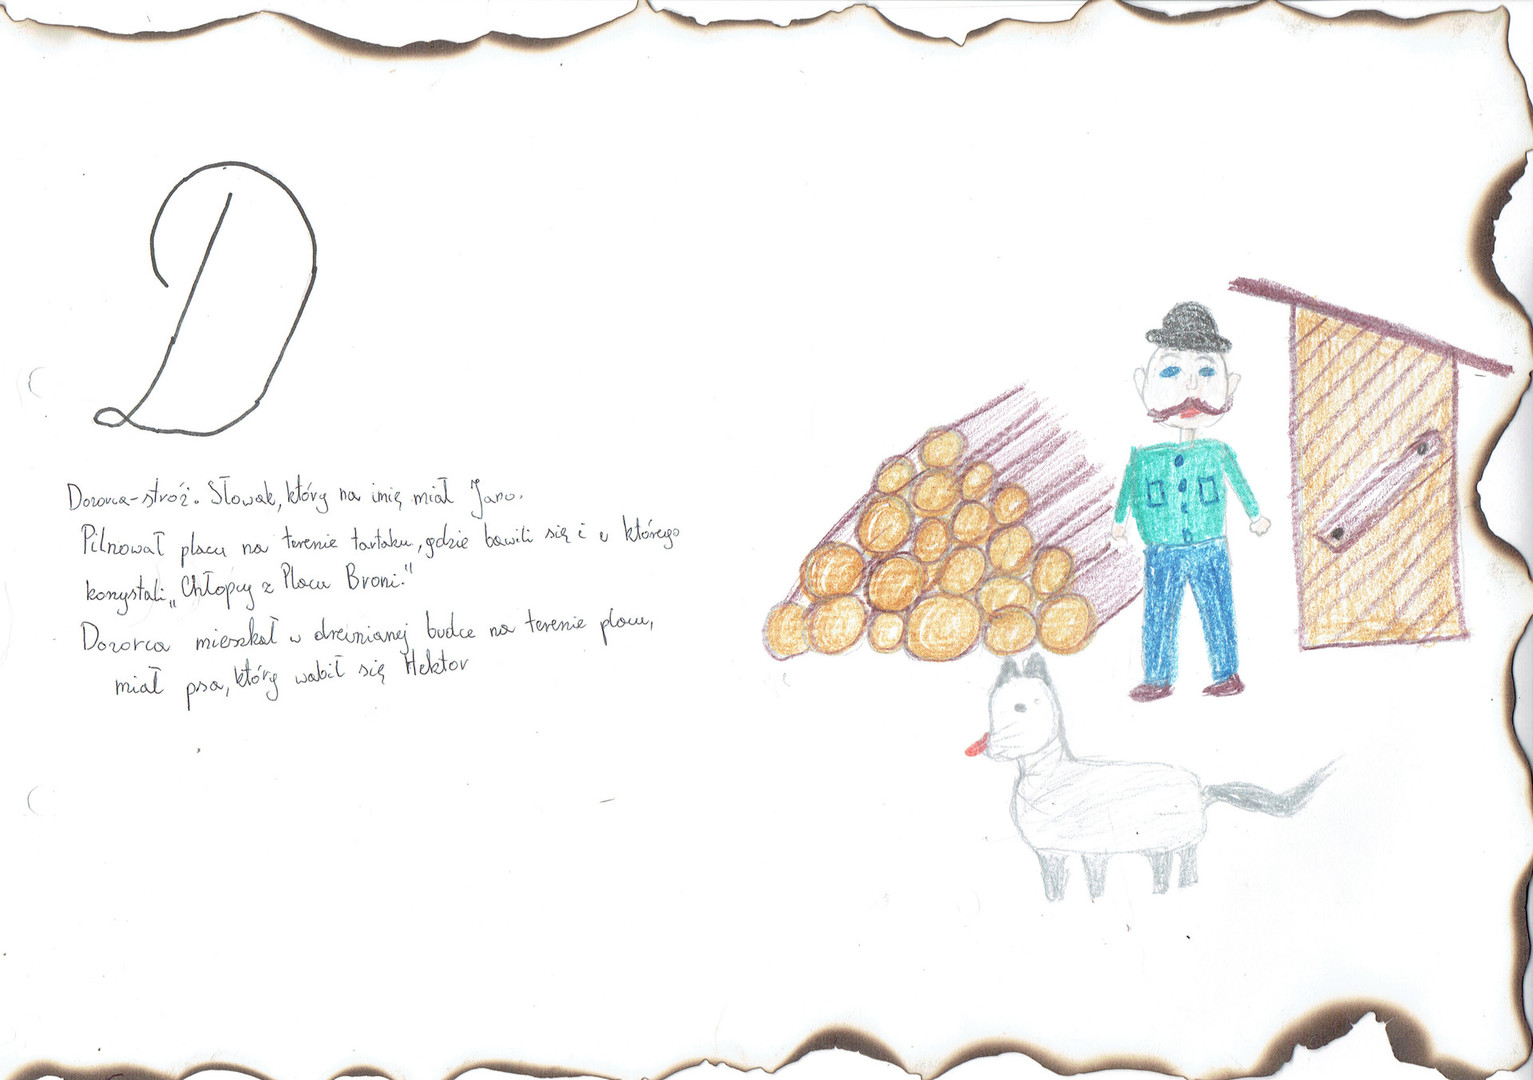 D
Dozorca-stróż. Słowak, który na imię miał Jano.
Pilnował placu na terenie tartaku, gdzie bawili się i z którego
korzystali „Chłopcy z Placu Broni."
Dozorca mieszkał w drewnianej budce na terenie placu,
miał psa, który wabił się Hektor